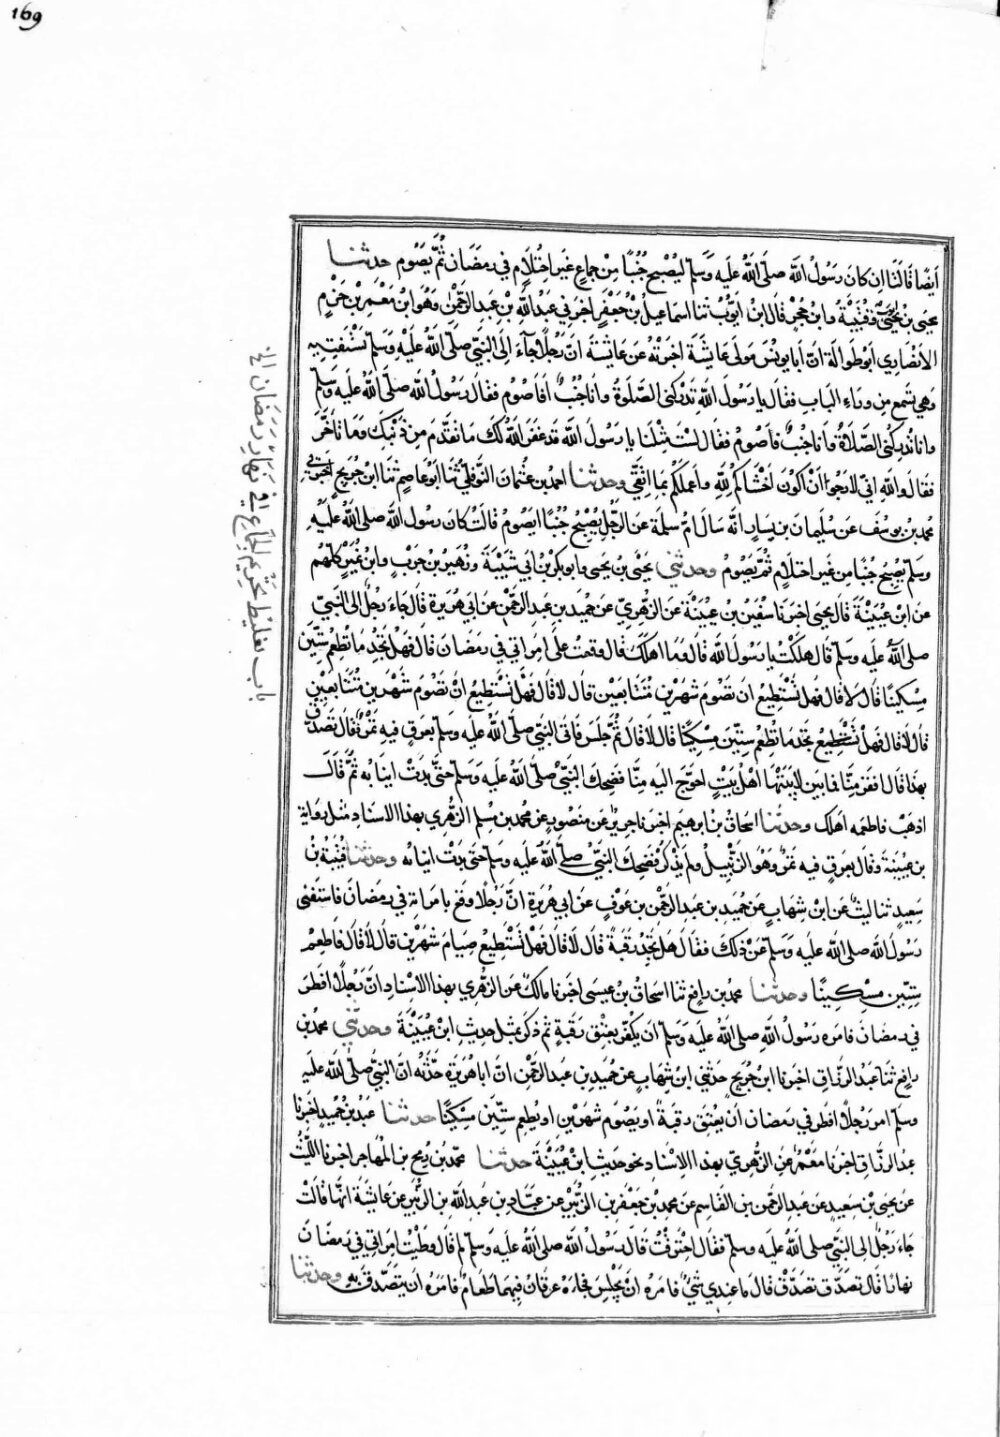 169
أيضا قالتا ان كان رسول الله صلى الله عليه وسلم ليصبح جنبا من جماع غير احتلام في رمضان ثم يصوم حدثنا
يحيى بن يحيى وقتيبة وابن حجر قال ابن ايوب ثنا اسماعيل بن جعفر اخبرني عبد الله بن عبد الرحمن وهو ابن معمر بن حزم
الانصاري ابو طوالة ان ابا يونس مولى عايشة اخبرته عن عايشة ان رجلا جاء الى النبي صلى الله عليه وسلم يستفتيه
وهي تسمع من وراء الباب فقال يا رسول الله تدركني الصلوة وانا جنب أفأصوم فقال رسول الله صلى الله عليه وسلم
وانا تدركني الصلاة وانا جنب فأصوم فقال لست مثلنا يا رسول الله قد غفر الله لك ما تقدم من ذنبك وما تأخر
فقال والله اني لارجوا ان اكون اخشاكم لله واعملكم بما اتقي وحدثنا احمد بن عثمان النوفلي ثنا ابو عاصم ثنا ابن جريج اخبرني
محمد بن يوسف عن سليمان بن يسار انه سأل ام سلمة عن الرجل يصبح جنبا ايصوم قالت كان رسول الله صلى الله عليه
وسلم يصبح جنبا من غير احتلام ثم يصوم وحدثني يحيى بن يحيى وابو بكر بن ابي شيبة وزهير بن حرب وابن نمير كلهم
عن ابن عيينة قال يحيى اخبرنا سفين بن عيينة عن الزهري عن حميد بن عبد الرحمن عن ابي هريرة قال جاء رجل الى النبي
صلى الله عليه وسلم قال هلكت يا رسول الله قال وما اهلكك قال وقعت على امراتي في رمضان قال فهل تجد ما تطعم ستين
مسكينا قال لا قال فهل تستطيع ان تصوم شهرين متتابعين قال لا قال فهل تستطيع ان تصوم شهرين متتابعين
قال لا قال فهل تستطيع تجد ما تطعم ستين مسكينا قال لا قال ثم جلس فاتى النبي صلى الله عليه وسلم بعرق فيه تمر فقال تصدق
بهذا قال افقر منا فما بين لابتيها اهل بيت احوج اليه منا فضحك النبي صلى الله عليه وسلم حتى بدت انيابه ثم قال
اذهب فاطعمه اهلك وحدثنا اسحاق بن ابرهيم اخبرنا جرير عن منصور عن محمد بن مسلم الزهري بهذا الاسناد مثل رواية
بن عيينة وقال بعرق فيه تمر وهو الزنبيل ولم يذكر فضحك النبي صلى الله عليه وسلم حتى بدت انيابه وحدثنا قتيبة بن
سعيد ثنا ليث عن ابن شهاب عن حميد بن عبد الرحمن بن عوف عن ابي هريرة ان رجلا وقع بامراته في رمضان فاستفتى
رسول الله صلى الله عليه وسلم عن ذلك فقال هل تجد رقبة قال لا قال فهل تستطيع صيام شهرين قال لا قال فاطعم
ستين مسكينا وحدثنا محمد بن رافع ثنا اسحاق بن عيسى اخبرنا مالك عن الزهري بهذا الاسناد ان رجلا افطر
في رمضان فامره رسول الله صلى الله عليه وسلم ان يكفر بعتق رقبة ثم ذكر بمثل حديث ابن عيينة وحدثني محمد بن
رافع ثنا عبد الرزاق اخبرنا ابن جريج حدثني ابن شهاب عن حميد بن عبد الرحمن ان ابا هريرة حدثه ان النبي صلى الله عليه
وسلم امر رجلا افطر في رمضان ان يعتق رقبة او يصوم شهرين او يطعم ستين مسكينا حدثنا عبد بن حميد اخبرنا
عبد الرزاق اخبرنا معمر عن الزهري بهذا الاسناد نحو حديث ابن عيينة حدثنا محمد بن رمح بن المهاجر اخبرنا الليث
عن يحيى بن سعيد عن عبد الرحمن بن القاسم عن محمد بن جعفر بن الزبير عن عباد بن عبد الله بن الزبير عن عائشة انها قالت
جاء رجل الى النبي صلى الله عليه وسلم فقال احترقت قال رسول الله صلى الله عليه وسلم لم قال وطئت امراتي في رمضان
نهارا قال تصدق تصدق قال ما عندي شيء فامره ان يجلس فجاءه عرقان فيهما طعام فامره ان يتصدق به وحدثنا
باب تغليظ تحريم الجماع في نهار رمضان الخ